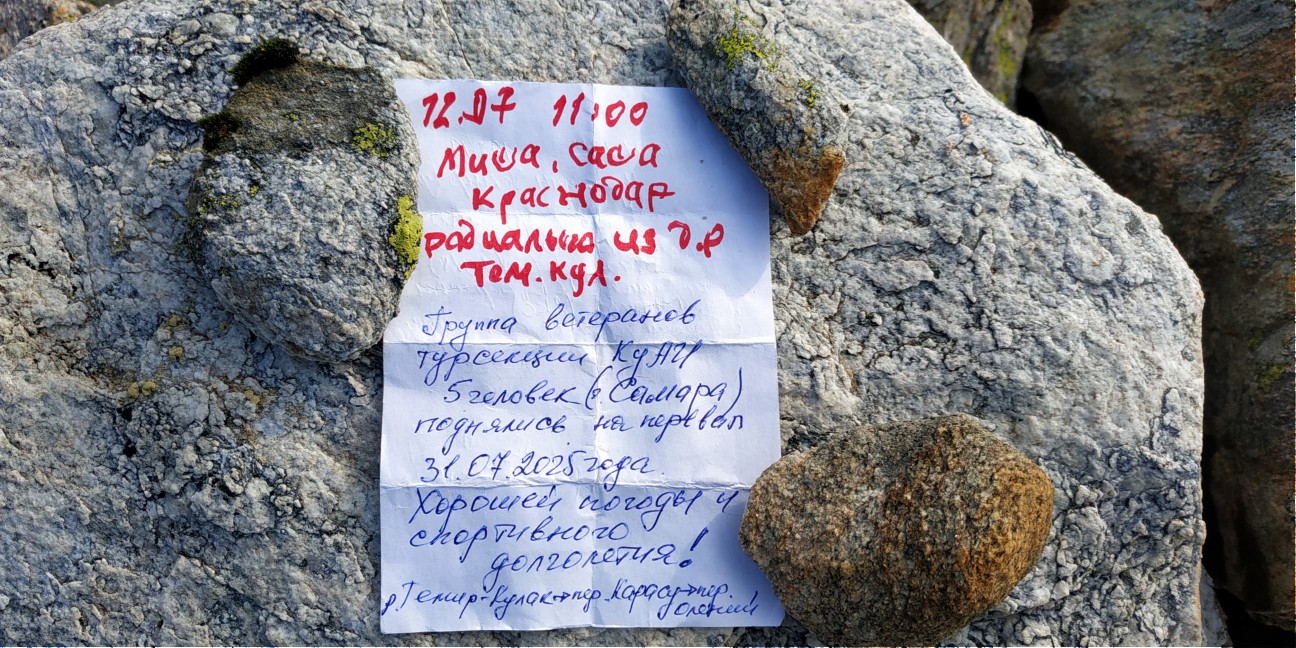 12.07 11:00
Миша, Саша
Краснодар
радиалка из д.р
Тем.Кул.
Группа ветеранов
турсекции КуАИ
5 человек (г. Самара)
поднялись на перевал
31.07.2025 года.
Хорошей погоды и
спортивного
долголетия!
р.Темир-Кулак→пер.Карасу→пер.
Олений